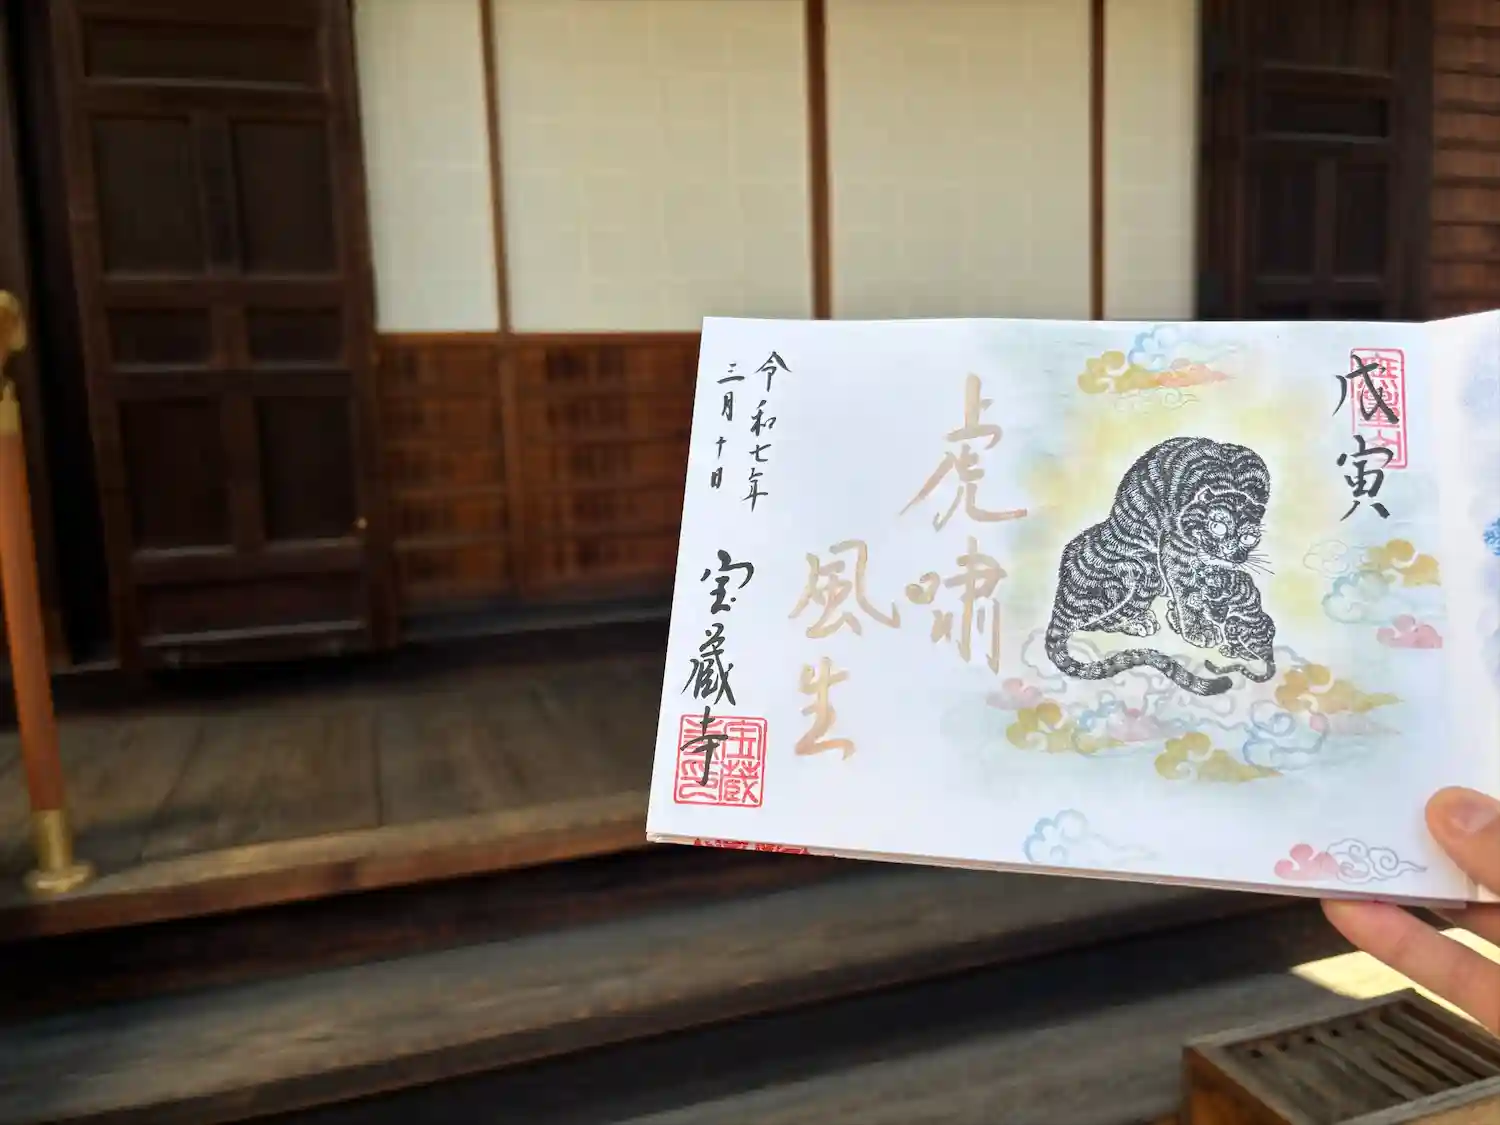 戊寅
虎嘯
風生
令和七年
三月十日
宝蔵寺